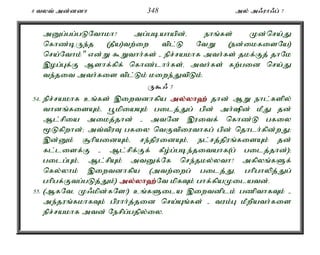 8 வலவ் அன்னனா 348 அல் அஃராஃப் 7
அனுப்பப்படுவோமா? அப்படியாயின், நாங்கள் முன்செய்து
கொண்டிருந்த (தீய)வற்றை விட்டு வேறு (நன்மைகளையே)
செய்வோம்" என்று கூறுவார்கள் - நிச்சயமாக அவர்கள் தமக்குத் தாமே
இழப்புக்கு ஆளாக்கிக் கொண்டார்கள், அவர்கள் கற்பனை செய்து
வந்தவை அவர்களை விட்டும் மறைந்துவிடும்.
ருகூஃ 7
54. நிச்சயமாக உங்கள் இறைவனாகிய அல்லாஹ் தான் ஆறு நாட்களில்
வானங்களையும், பூமியையும் படைத்துப் பின் அர்ஷின் மீது தன்
ஆட்சியை அமைத்தான் - அவனே இரவைக் கொண்டு பகலை
மூடுகிறான்; அவ்விரவு பகலை வெகுவிரைவாகப் பின் தொடர்கின்றது;
இன்னும் சூரியனையும், சந்திரனையும், நட்சத்திரங்களையும் தன்
கட்டளைக்கு - ஆட்சிக்குக் கீழ்ப்படிந்தவையாக(ப் படைத்தான்);
படைப்பும், ஆட்சியும் அவனுக்கே சொந்தமல்லவா? அகிலங்களுக்
கெல்லாம் இறைவனாகிய (அவற்றைப் படைத்து, பரிபாலித்துப்
பரிபக்குவப்படுத்தும்) அல்லாஹ்வே மிகவும் பாக்கியமுடையவன்.
55. (ஆகவே, முஃமின்களே!) உங்களுடைய இறைவனிடம் பணிவாகவும் -
அந்தரங்கமாகவும் பிரார்த்தனை செய்யுங்கள் - வரம்பு மீறியவர்களை
நிச்சயமாக அவன் நேசிப்பதில்லை.